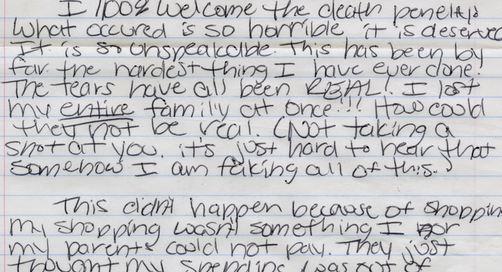 I 100% welcome the death penelty
What occured is so horrible it is deserved
It is so unspeakable. This has been by
far the hardest thing I have ever done.
The tears have all been REAL! I lost
my entire family at once!!! How could
they not be real. (Not taking a
shot at you. it's just hard to hear that
somehow I am faking all of this.
This didn't happen because of shoppin
my shopping wasn't something I or
my parents could not pay. They just
thought my spending was out of